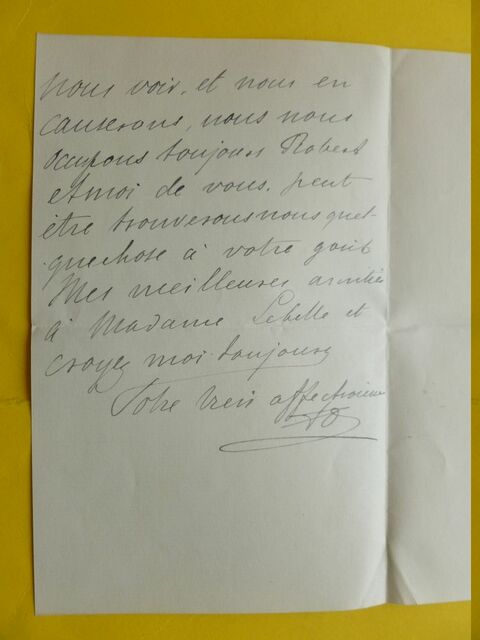 nous voir, et nous en
causerons, nous nous
ocupons toujours Robert
et moi de vous. peut
être trouverons nous quel-
que chose à votre goût
Mes meilleures amitiés
à Madame Lebelle et
croyez moi toujours
Votre bien affectionné